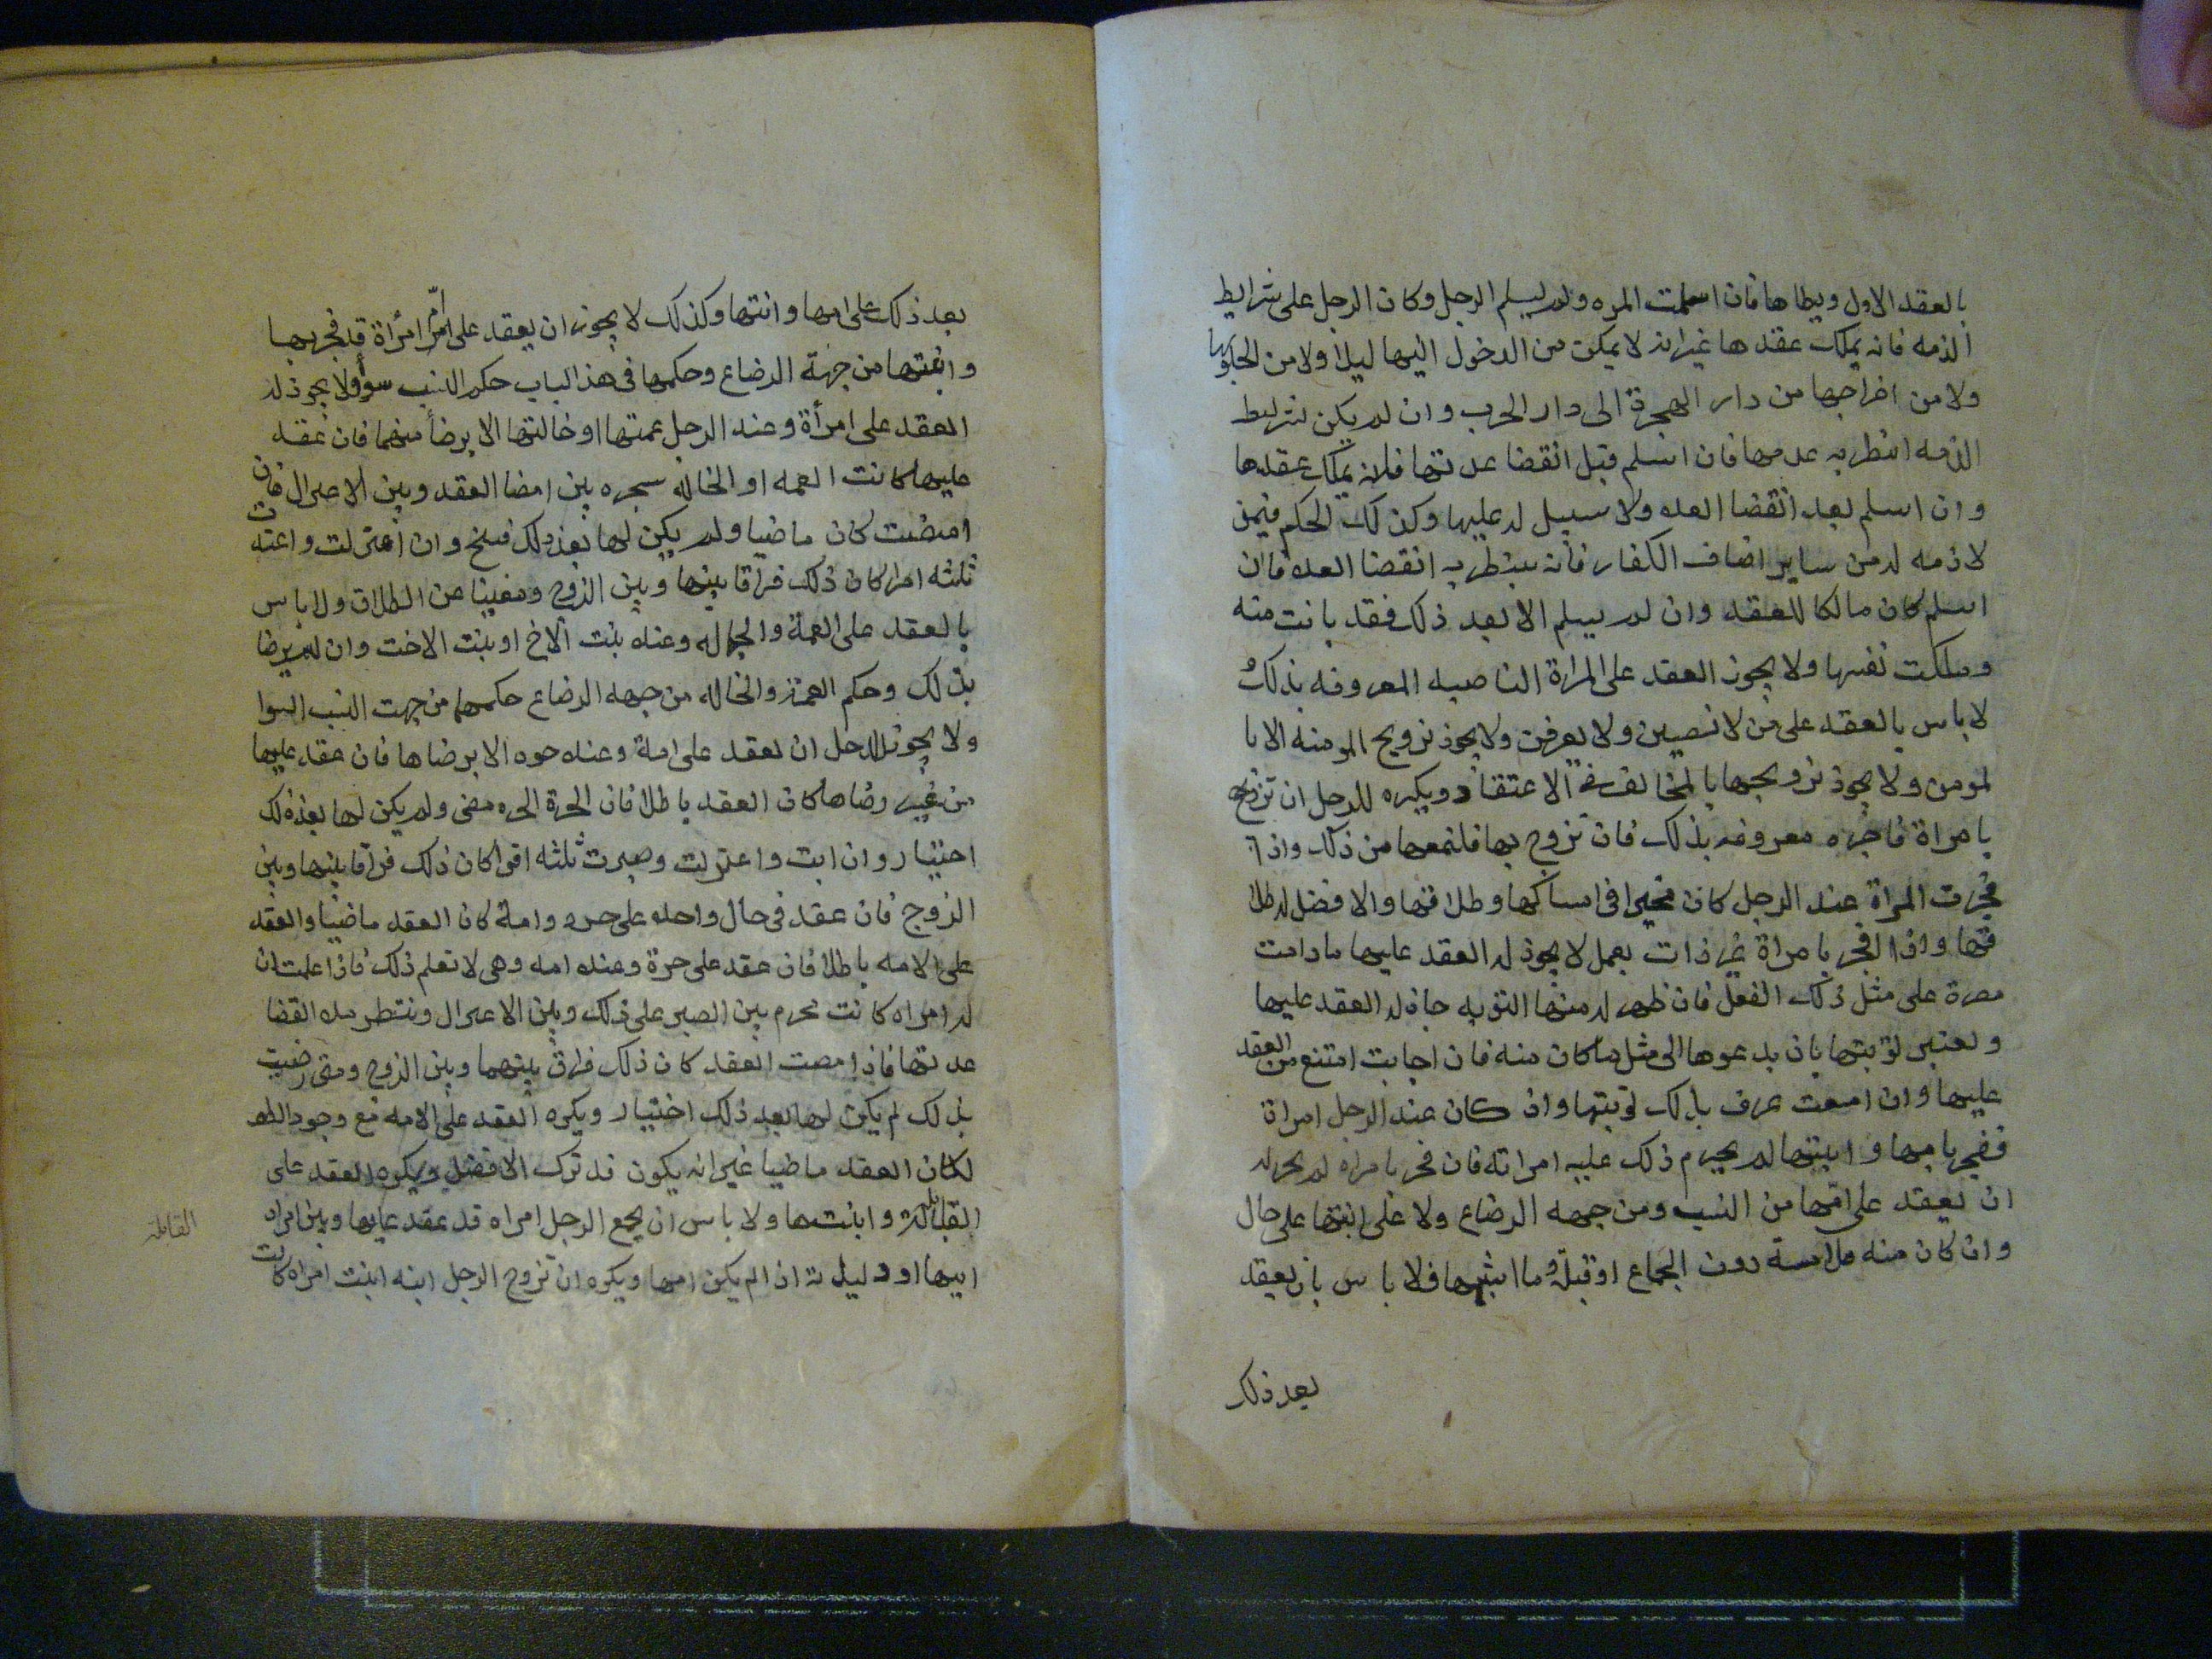 بالعقد الاول ويطاها فان اسلمت المره ولم يسلم الرجل وكان الرجل على شرايط
الذمه فانه يملك عقدها غير انه لا يمكن من الدخول اليها ليلا ولا من الخلو بها
ولا من اخراجها من دار الهجرة الى دار الحرب وان لم يكن شرايط
الذمه انتظر به عدتها فان اسلم قبل انقضا عدتها فانه يملك عقدها
وان اسلم بعد انقضا العده ولا سبيل له عليها وكذلك الحكم فيمن
لا ذمه له من ساير اضاف الكفار فانه ينتظر به انقضا العده فان
اسلم كان مالكا للعقد وان لم يسلم الا بعد ذلك فقد بانت منه
وملكت نفسها ولا يجوز العقد على المراة الناصبه المعروفه بذلك و
لا باس بالعقد على من لا نصبين ولا يعرفن ولا يجوز تزويج المومنه الا با
لمومن ولا يجوز تزويجها بالمخالف في الاعتقاد ويكره للرجل ان تزوج
بامراة فاجره معروفه بذلك فان تزوج بها فلتمنعها من ذلك واذا
فجرت المراة عند الرجل كان مخيرا في امساكها وطلاقها والافضل له طلا
قها واذا الفجر بامراة غير ذات بعل لا يجوز له العقد عليها ما دامت
مصرة على مثل ذلك الفعل فان ظهر له منها التوبه جاز له العقد عليها
ويعتبر توبتها بان يدعوها الى مثل ما كان منه فان اجابت امتنع من العقد
عليها وان امتنعت عرف بذلك توبتها وان كان عند الرجل امراة
ففجر بامها او ابنتها لم يحرم ذلك عليه امراته فان فجر بامراه لم يحز له
ان يعقد على امها من النسب ومن جهه الرضاع ولا على ابنتها على حال
وان كان منه ملامسة دون الجماع او قبلة وما اشبهها فلا باس بان يعقد
بعد ذلك
بعد ذلك على امها وابنتها وكذلك لا يجوز ان يعقد على ام امرأة قد فجر بها
وابنتها من جهة الرضاع وحكمها في هذا الباب حكم النسب سوأ ولا يجوز له
العقد على امرأة وعند الرجل عمتها او خالتها الا برضأ منهما فان عقد
عليها كانت العمه او الخاله مخيره بين امضا العقد وبين الاعتزال فان
امضت كان ماضيا ولم يكن لها بعد ذلك فسخ وان اعتزلت واعتدت
ثلثه اقرا كان ذلك فراقا بينها وبين الزوج ومغنيا عن الطلاق ولا باس
بالعقد على العمة والخاله وعنده بنت الاخ او بنت الاخت وان لم يرضا
بذلك وحكم العمة والخاله من جهه الرضاع حكمهما من جهت النسب السوا
ولا يجوز للرجل ان يعقد على امة وعنده حره الا برضاها فان عقد عليها
من غير رضاها كان العقد باطلا فان الحرة الحره مضى ولم يكن لها بعد ذلك
اختيار وان ابت واعتزلت وصبرت ثلثه اقرا كان ذلك فراقا بينها وبين
الزوج فان عقد في حال واحده على حره وامة كان العقد ماضيا والعقد
على الامه باطلا فان عقد على حرة وعنده امه وهي لا تعلم ذلك فاذا علمت ان
له امراه كانت مخيره بين الصبر على ذلك وبين الاعتزال وينتظر مده انقضا
عدتها فاذا مصت العقد كان ذلك فراق بينهما وبين الزوج ومتى رضيت
بذلك لم يكن لها بعد ذلك اختيار ويكره العقد على الامه مع وجود الطو
لكان العقد ماضيا غير انه يكون قد ترك الافضل ويكره العقد على
القابلة وابنتها ولا باس ان يجمع الرجل امراه قد عقد عليها وبين امراه
ابيها او وليدته اذا لم يكن امها ويكره ان تزوج الرجل ابنه ابنت امراه كانت
القابلة